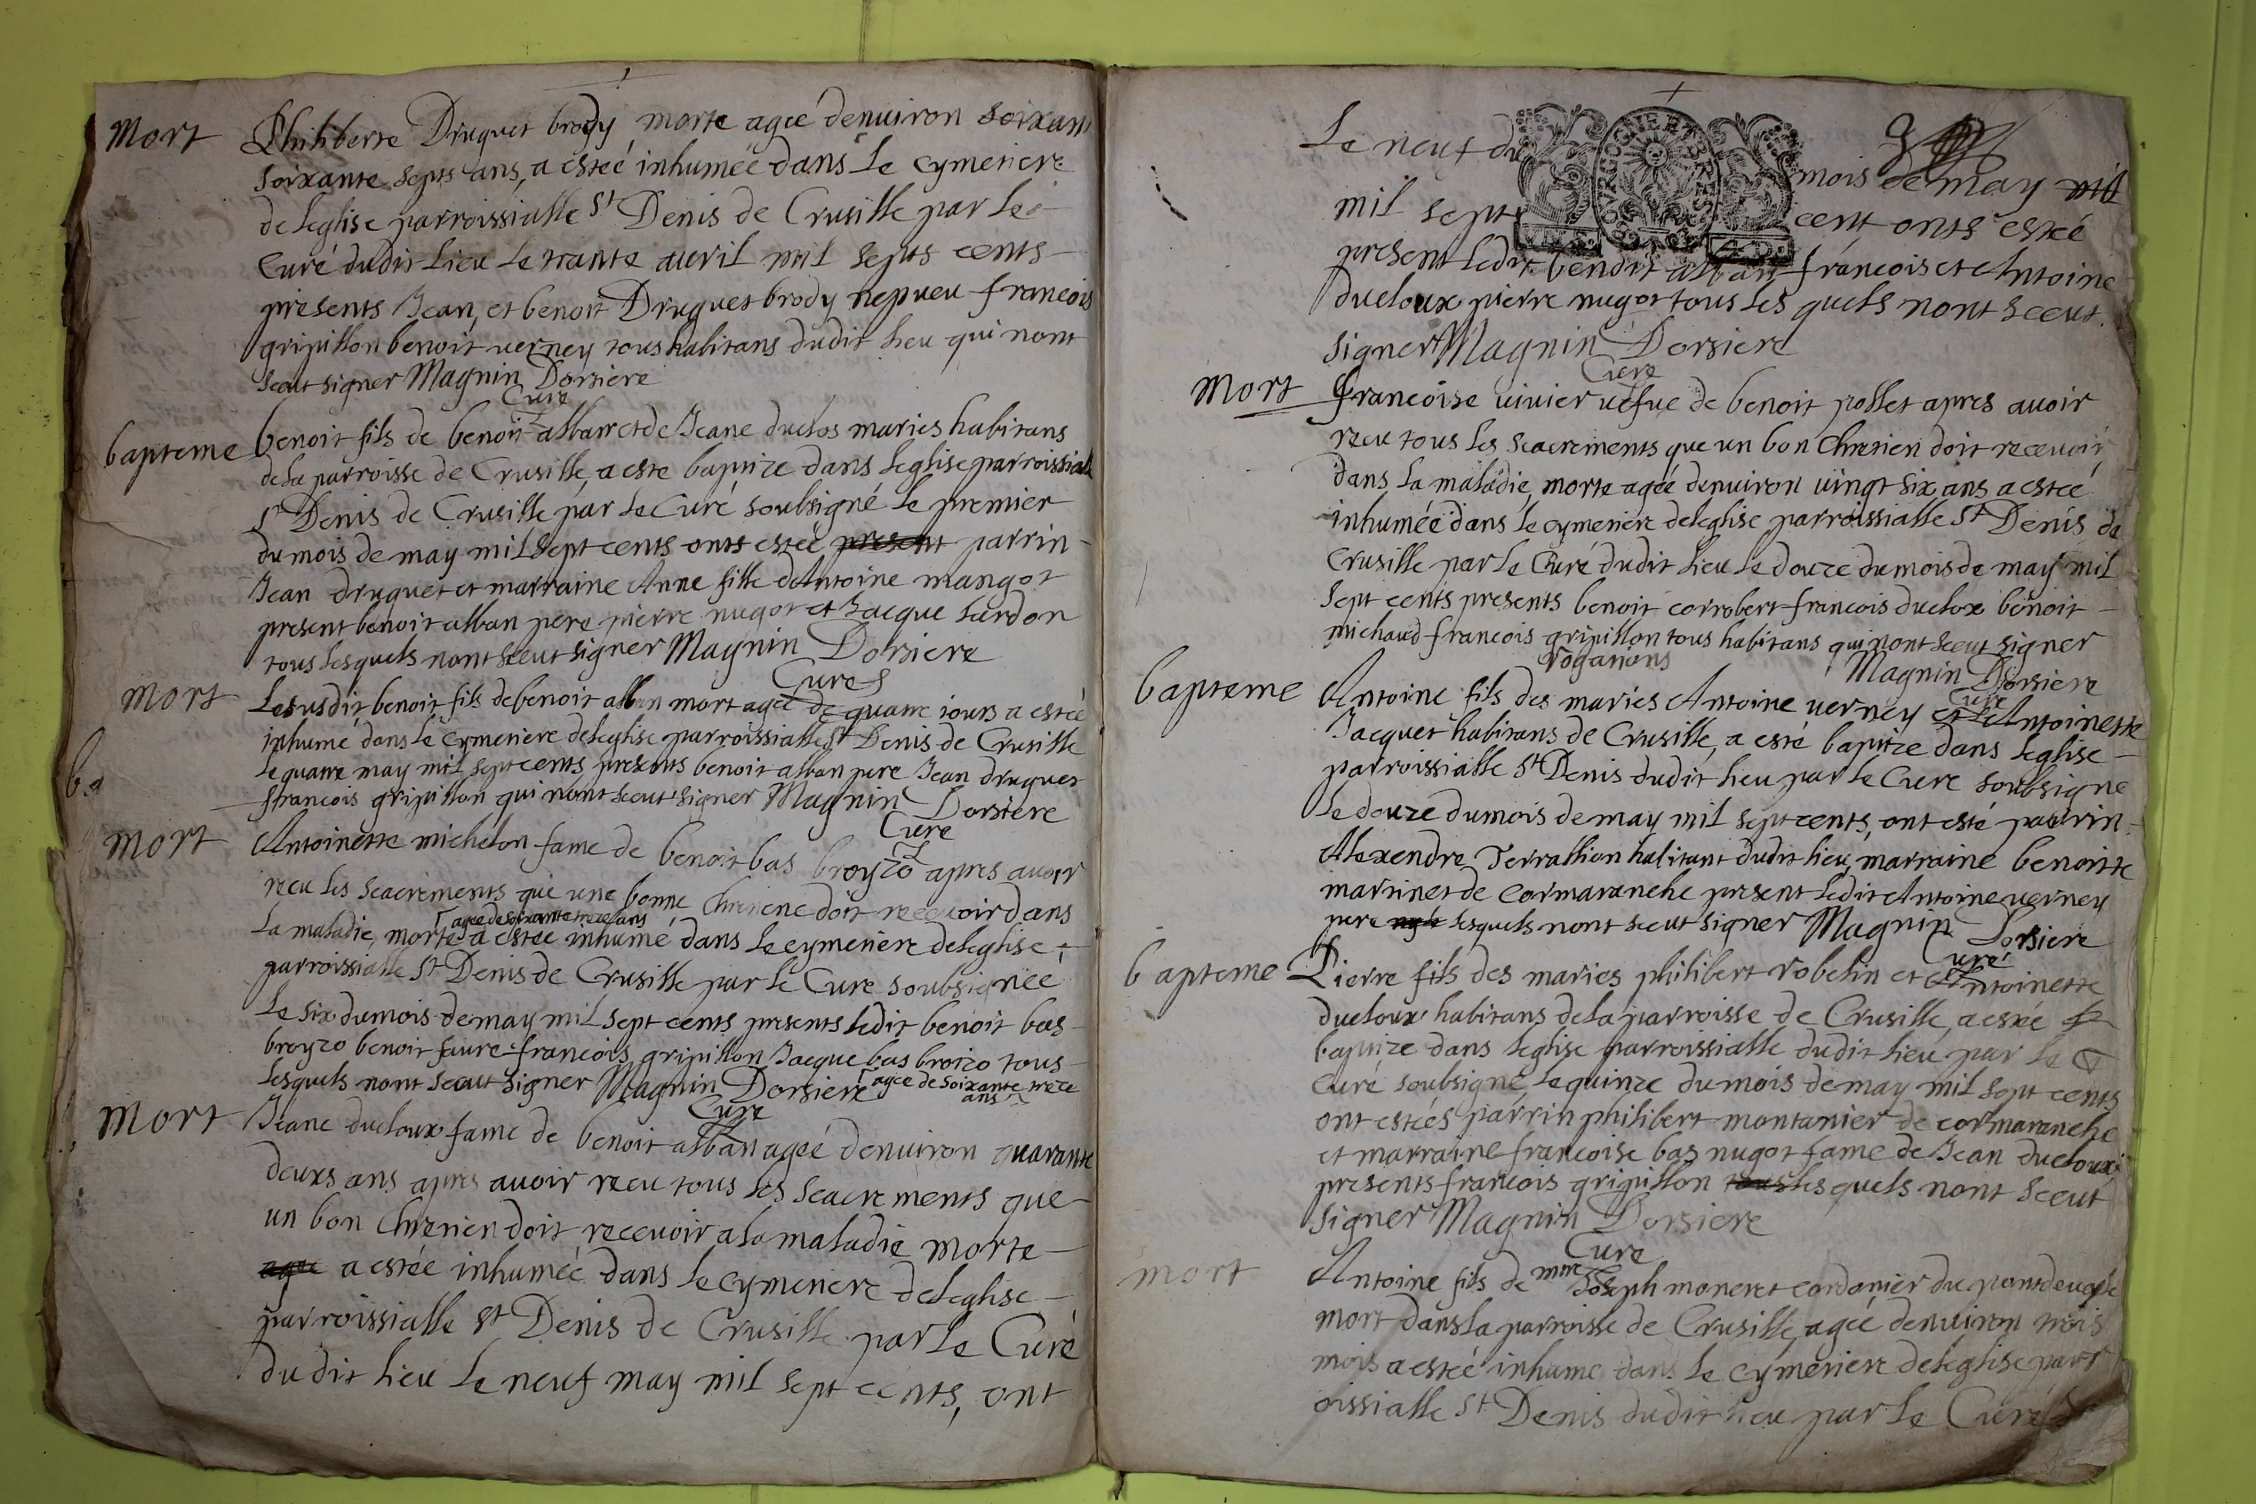 mort
Philiberte Druguet brody morte ageé denuiron soixant
soixante septs ans, a esteé inhumée dans le cymetiere
deleglise parroissialle St Denis de Crusille par le
Curé dudit lieu le trante auril mil septs cents
presents Jean, et benoit Druguet brody nepueu francois
gripillon benoit uerney tous habitans dudit lieu qui nont
sceut signer Magnin Dorsiere
Curé
bapteme
benoit fils de benoit alban et de Jeane duclos maries habitans
dela parroisse de Crusille, a este baptize dans leglise parroissialle
St Denis de Crusille par le Curé soubsigné le premier
du mois de may mil sept cents onts esteé present parrin
Jean druguet et marraine Anne fille de Antoine mangot
present benoit alban pere pierre nugot et Jacque Lardon
tous lesquels nont sceut signer Magnin Dorsiere
Curé
mort
Lesusdit benoit fils de benoit alban mort ageé de quatre iours a esteé
inhumé dans le cymetiere deleglise parroissialle St Denis de Crusille
le quatre may mil sept cents presents benoit alban pere Jean druguet
francois gripillon qui nont sceut signer Magnin Dorsiere
Curé
ba
mort
Antoinette michelon fame de benoit bas broyzo apres auoir
receu les seacrements que une bonne Chretiene doit receuoir dans
agee de soixante treze ans
la maladie, morte a estée inhumé dans le cymetiere deleglise
parroissialle St Denis de Crusille par le Cure soubsignée
le six du mois de may mil sept cents presents ledit benoit bas
broyzo benoit faure francois gripillon Jacque bas broizo tous
lesquels nont sceut signer Magnin Dorsiere agee de soixante treze
ans
Curé
mort
Jeane ducloux fame de benoit alban ageé denuiron quarante
deuxs ans apres auoir receu tous les seacrements que
un bon Chretien doit receuoir a la maladie morte
agée a estée inhumée dans le cymetiere deleglise
parroissialle St Denis de Crusille par le Curé
du dit lieu le neuf may mil sept cents, ont
9
Le neuf du mois de may mil
mil sept cent onts esteé
present ledit benoit alban francois et Antoine
ducloux pierre nugot tous les quels nont sceut
signer Magnin Dorsiere
Curé
mort
francoise uiuier uefue de benoit pollet apres auoir
receu tous les seacrements que un bon Chretien doit receuoir
dans la maladie, morte ageé denuiron uingt six ans a esteé
inhumée dans le cymetiere deleglise parroissialle St Denis de
Crusille par le Curé dudit lieu le douze du mois de may mil
sept cents presents benoit corrobert francois duclox benoit
michaud francois gripillon tous habitans qui nont sceut signer
rogations
Magnin Dorsiere
Curé
bapteme
Antoine fils des maries Antoine uerney et Antoinette
Jacquet habitans de Crusille, a esté baptize dans leglise
parroissialle St Denis dudit lieu par le Cure soubsigne
le douze du mois de may mil sept cents, ont esté parrin
Alexendre Terrallion habitant dudit lieu, marraine benoitte
martinet de Cormaranche present ledit Antoine uerney
pere lesquels nont sceut signer Magnin Dorsiere
Curé
bapteme
Pierre fils des maries philibert robelin et Antoinette
ducloux habitans dela parroisse de Crusille, a esteé
baptize dans leglise parroissialle dudit lieu par le
Curé soubsigné, le quinze du mois de may mil sept cents
ont esteés parrin philibert montanier de cormaranche
et marraine francoise bas nugot fame de Jean ducloux
presents francois gripillon tous lesquels nont sceut
signer Magnin Dorsiere
Curé
mort
Antoine fils de mtre Joseph moneret cordonier du pontdeuesle
mort dans la parroisse de Crusille, ageé denuiron trois
mois a esteé inhumé dans le cymetiere deleglise parr
oissialle St Denis dudit lieu par le Curé